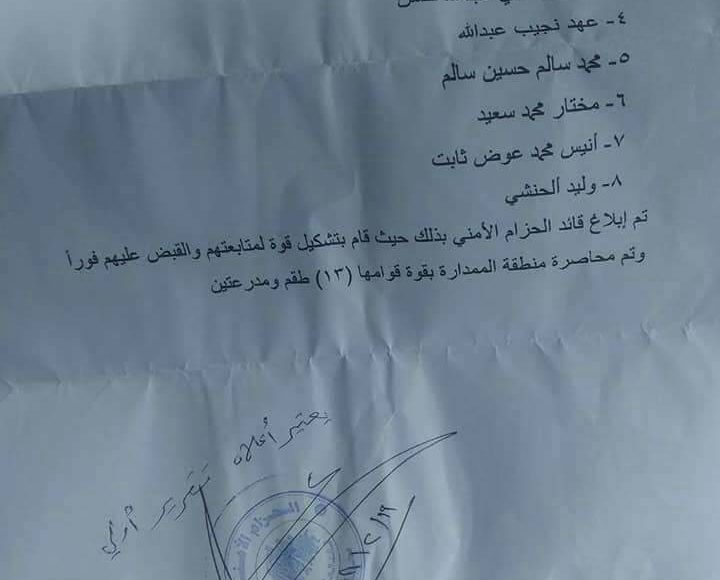 ٤- عهد نجيب عبدالله
٥- محمد سالم حسين سالم
٦- مختار محمد سعيد
٧- أنيس محمد عوض ثابت
٨- وليد الحنشي
تم إبلاغ قائد الحزام الأمني بذلك حيث قام بتشكيل قوة لمتابعتهم والقبض عليهم فوراً
وتم محاصرة منطقة الممدارة بقوة قوامها (١٣) طقم ومدرعتين
يعتبر أعلاه تقرير أولي
الحزام الأمني